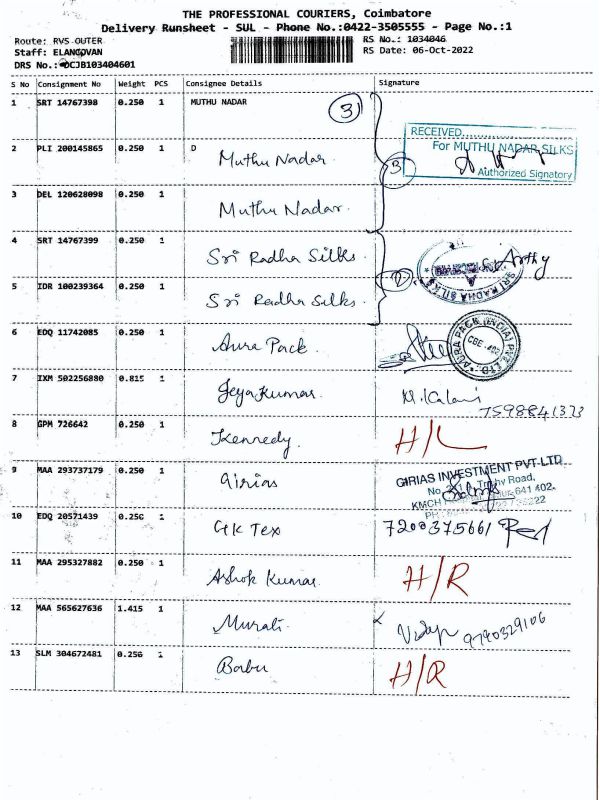 THE PROFESSIONAL COURIERS, Coimbatore
Delivery Runsheet - SUL - Phone No.:0422-3505555 - Page No.:1
Route: RVS OUTER
RS No.: 1034046
Staff: ELANGOVAN
RS Date: 06-Oct-2022
DRS No.: DCJB103404601
S No Consignment No Weight PCS Consignee Details Signature
1 SRT 14767398 0.250 1 MUTHU NADAR 3
RECEIVED
For MUTHU NADAR SILKS
Authorized Signatory
2 PLI 200145865 0.250 1 D Muthu Nadar. 3
3 DEL 120628098 0.250 1 Muthu Nadar.
4 SRT 14767399 0.250 1 Sri Radha Silks. Arthy
SRI RADHA SILKS
5 IDR 100239364 0.250 1 Sri Radha Silks.
6 EDQ 11742085 0.250 1 Aura Pack.
AURA PACK (INDIA) PVT. LTD.
7 IXM 502256880 0.815 1 Jeyakumar. M. Kalani
7598841373
8 GPM 726642 0.250 1 Kennedy. H/L
9 MAA 293737179 0.250 1 Girias
GIRIAS INVESTMENT PVT-LTD
Road,
641 402.
10 EDQ 20571439 0.250 1 GK Tex 7200375661
11 MAA 295327882 0.250 1 Ashok Kumar. H/R
12 MAA 565627636 1.415 1 Murali. 9790329106
13 SLM 304672481 0.250 1 Babu H/R